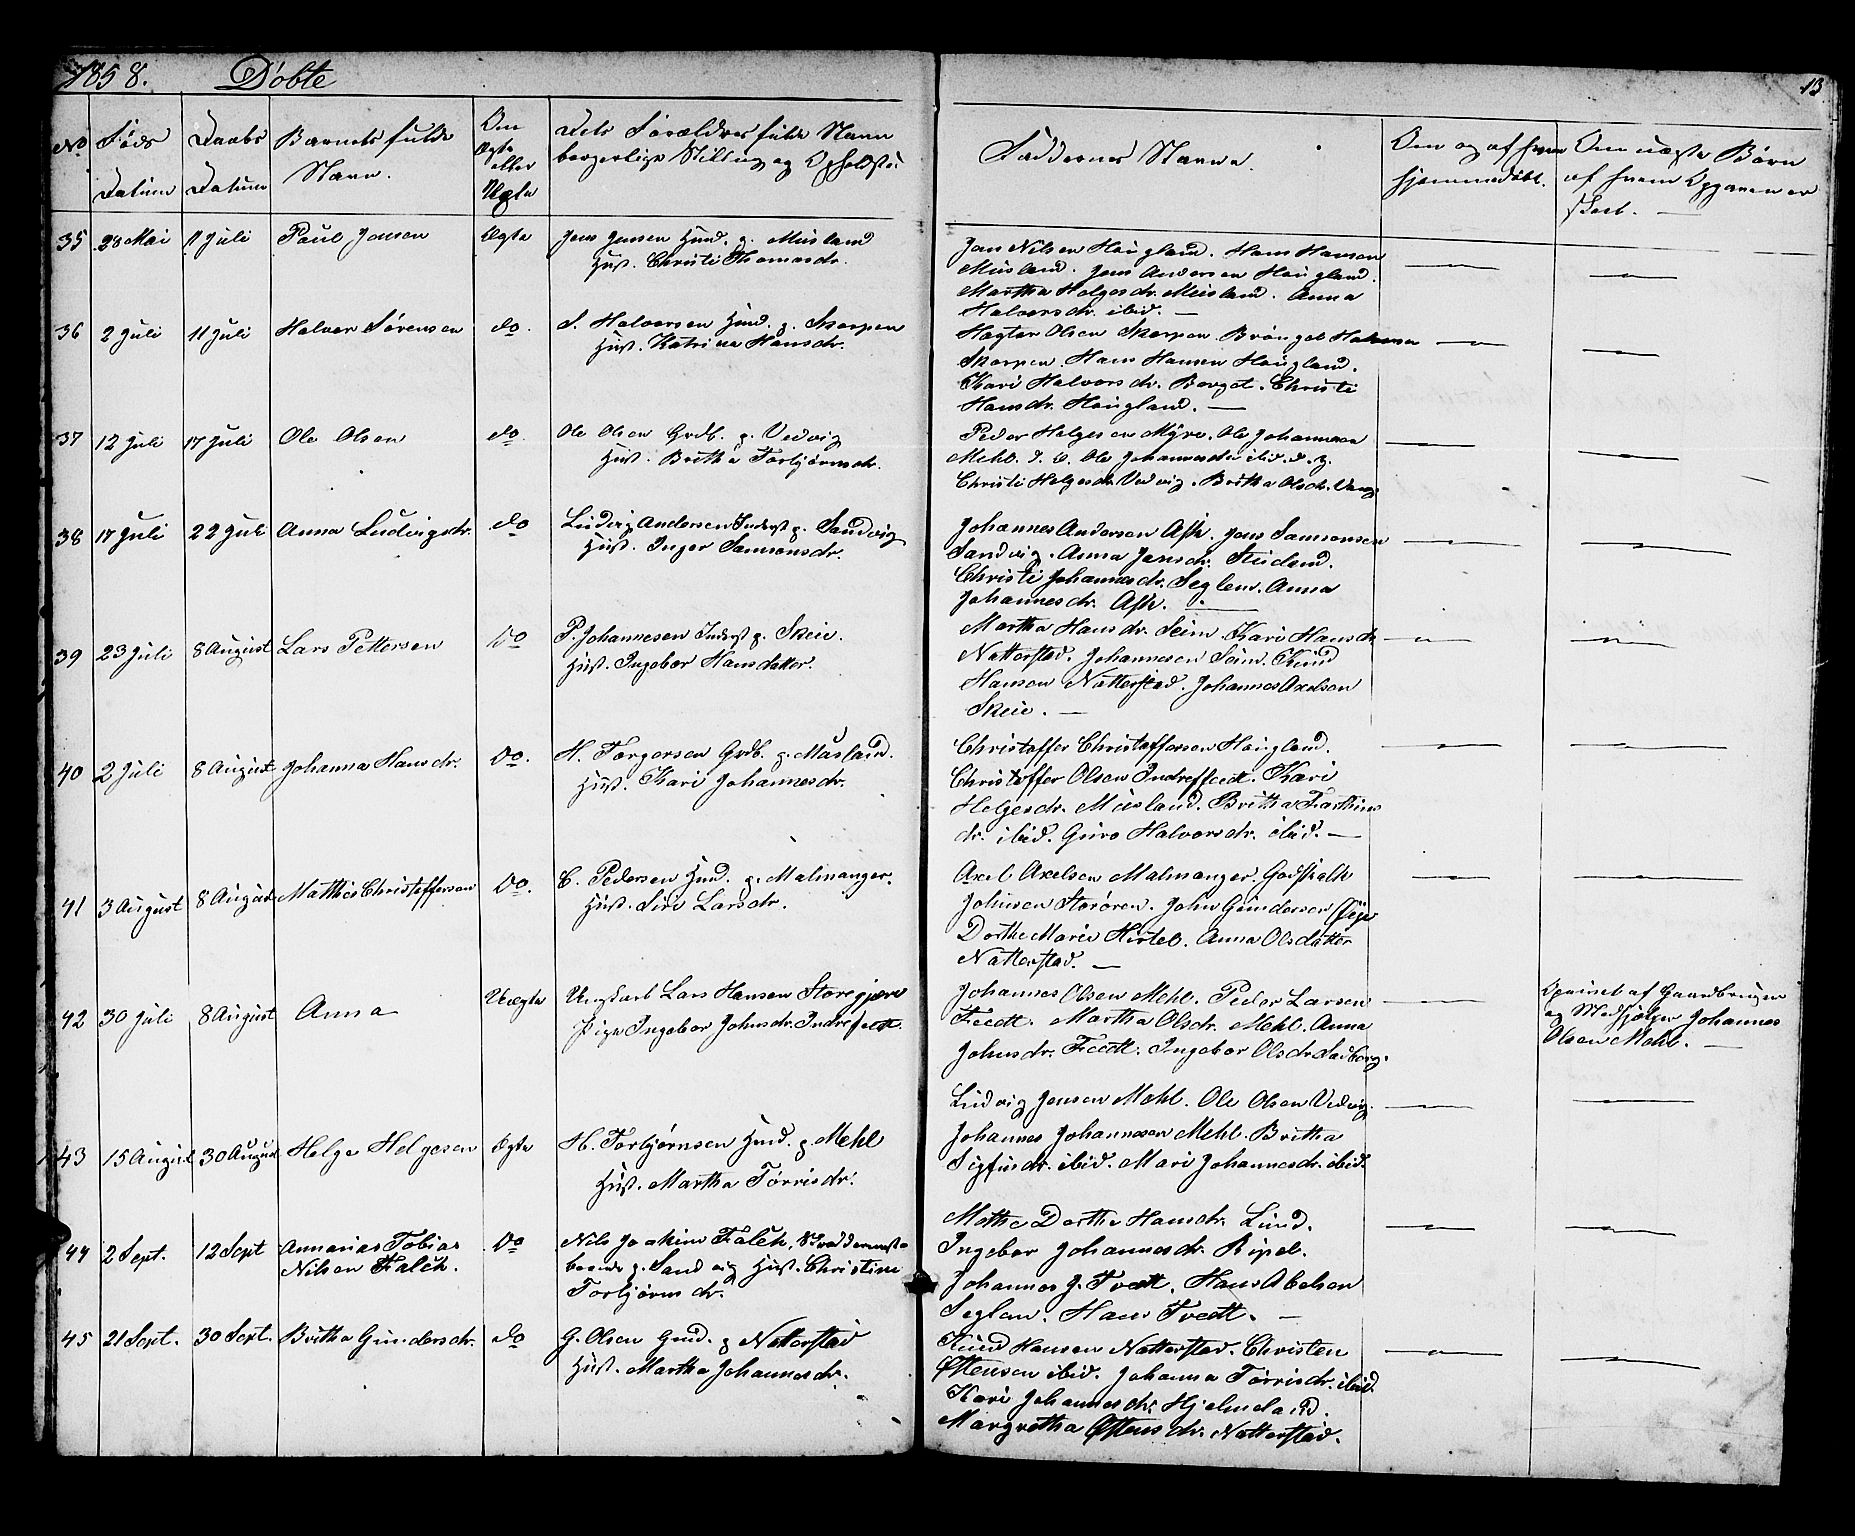 1858. Døbte
13
No
Føds Datum
Daabs Datum
Barnets fulde Navn.
Om Ægte eller Uægte
Dets Forældres fulde Navn borgerlige Stilling og Opholdsted
Faddernes Navne.
Om og af hvem hjemmedøbt.
Om uægte Børn af hvem Opgaven er skeet.
35 28 Mai 11 Juli Paul Jensen Ægte Jens Jensen Husmd. p. Musland
Hust. Christi Thomasdr.
Jens Nilsen Haugland. Hans Hansen
Musland. Jens Andersen Haugland.
Martha Helgesdr. Musland. Anna
Halvorsdr. ibid.
36 2 Juli 11 Juli Halvor Sørensen do. S. Halvorsen Husmd. p. Skorpen
Hust. Katrina Hansdr.
Olsen Skorpen
Skorpen. Hans Hansen Haugland.
Kari Halvorsdr. Borget. Christi
Hansdr. Haugland.
37 12 Juli 17 Juli Ole Olsen do. Ole Olsen Grdb. p. Vedvig
Hust. Britha Torbjørnsdr.
Peder Helgesen Myre. Ole Johannesen
Mehl. Ole Johannesen ibid.
Christi Helgesdr. Vedvig. Britha Olsdr.
38 17 Juli 22 Juli Anna Ludvigsdr. do Ludvig Andersen Inderst p. Sandvig
Hust. Inger Samsonsdr.
Johannes Andersen Ask. Jens Samsonsen
Sandvig. Anna Jensdr.
Christi Johannesdr. Seglem. Anna
Johannesdr. Ask.
39 23 Juli 8 August Lars Pettersen Do P. Johannesen Inderst p. Skeie.
Hust. Ingebor Hansdatter.
Martha Hansdr. Seim. Kari Hansdr.
Natterstad. Johannesen Seim. Knud
Hansen Natterstad. Johannes Axelsen
Skeie.
40 2 Juli 8 August Johanna Hansdr. Do. H. Torgersen Grdb. p. Musland.
Hust. Kari Johannesdr.
Christoffer Christoffersen Haugland.
Christoffer Olsen Indretfeedt. Kari
Helgesdr. Musland. Britha
dr. ibid. Guro Halvorsdr. ibid.
41 3 August 8 August Mathis Christoffersen Do. C. Pedersen Husmd. p. Malmanger.
Hust. Siri Larsdr.
Axel Axelsen Malmanger. Godskalk
Johnsen Storøren. John Gundersen
Dorthe Marie Hirtel. Anna Olsdatter
Natterstad.
42 30 Juli 8 August Anna Uægte Ungkarl Lars Hansen
Pige Ingebor Johnsdr. Indrefeedt.
Johannes Olsen Mehl. Peder Larsen
Feedt. Martha Olsdr. Mehl. Anna
Johnsdr. Feedt. Ingebor Olsdr.
Opgivet af Gaardbruger
og Medhjelper Johannes
Olsen Mehl.
43 15 August 30 August Helge Helgesen Ægte H. Torbjørnsen Husmd. p. Mehl
Hust. Martha Tørrisdr.
Ludvig Jensen Mehl. Ole Olsen Vedvig.
Johannes Johannesen Mehl. Britha
Sigfusdr. ibid. Mari Johannesdr. ibid.
44 2 Sept. 12 Sept Annanias Tobias
Nilsen Falch. Do Nils Joakim Falch,
p. Sandvig Hust. Christine
Torbjørnsdr.
Mette Dorthe Hansdr. Lund.
Ingebor Johannesdr. Ripel.
Johannes J. Tvedt. Hans Abelsen
Seglem. Hans Tvedt.
45 21 Sept. 30 Sept. Britha Gundersdr. do G. Olsen Grd. p Natterstad
Hust. Martha Johannesdr.
Knud Hansen Natterstad. Christen
Østensen ibid. Johanna Tørrisdr. ibid.
Kari Johannesdr. Hjelmeland.
Margretha Østensdr. Natterstad.